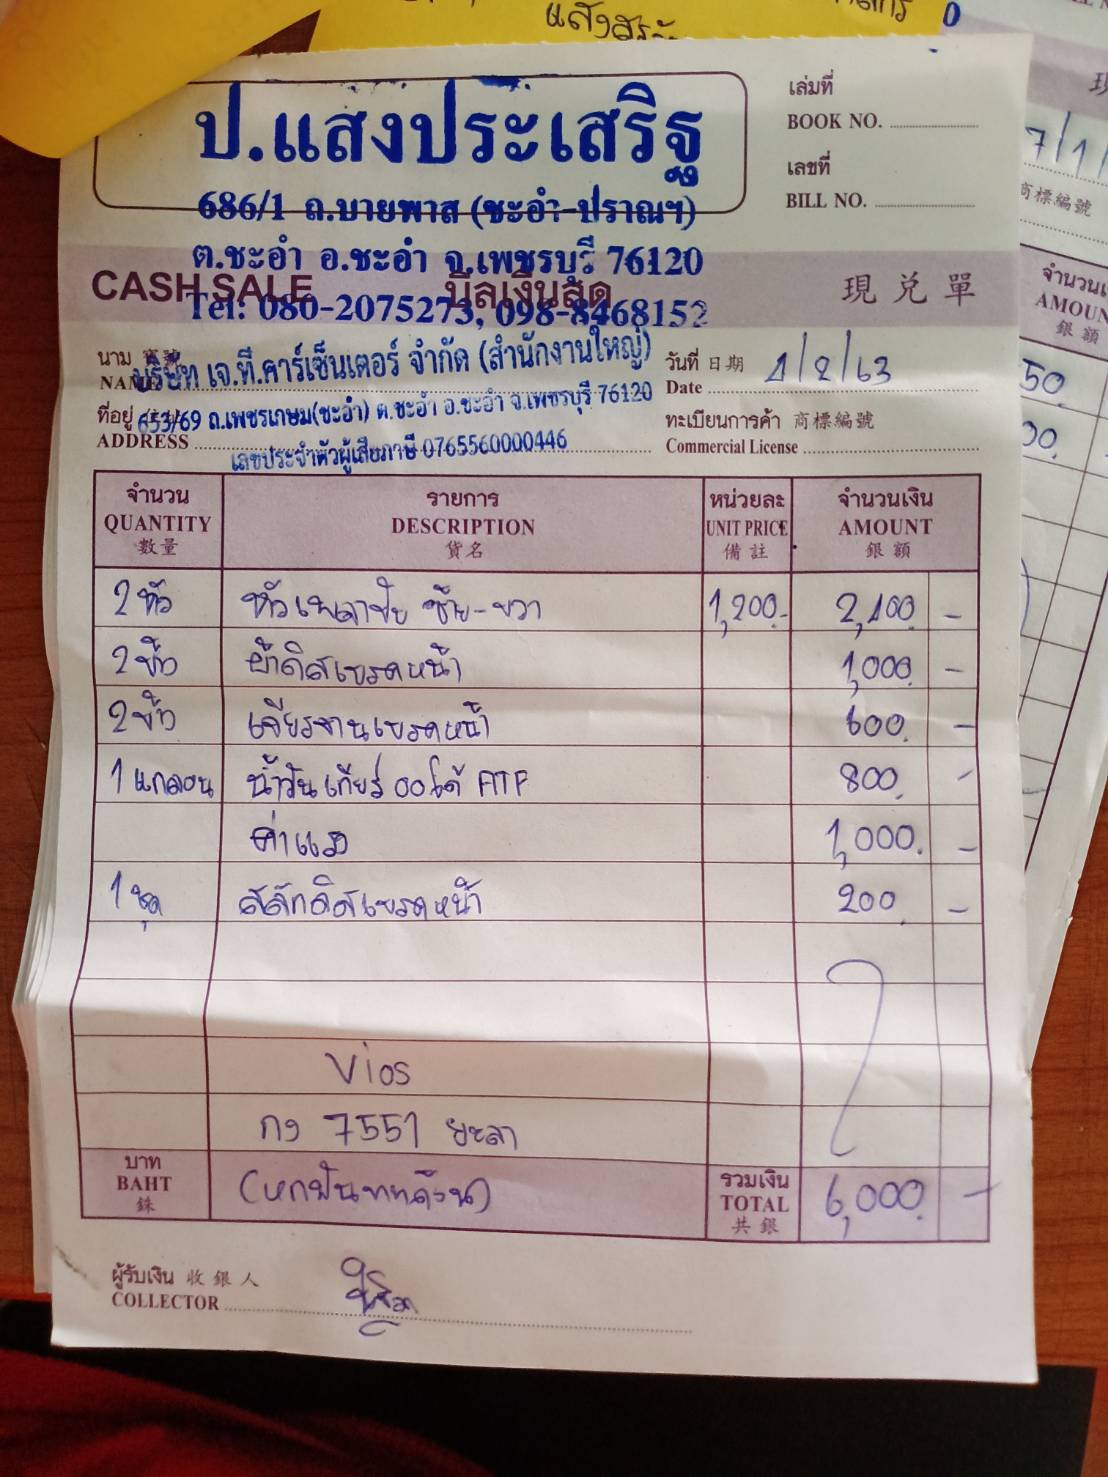 แสงสร
ป.แสงประเสริฐ
686/1 ถ.บายพาส (ชะอำ-ปราณฯ)
ต.ชะอำ อ.ชะอำ จ.เพชรบุรี 76120
Tel: 080-2075273, 098-8468152
เล่มที่
BOOK NO.
เลขที่
BILL NO.
CASH SALE บิลเงินสด 現兌單
นาม
NAME บริษัท เจ.ที.คาร์เซ็นเตอร์ จำกัด (สำนักงานใหญ่)
วันที่ 日期
Date 1/2/63
ที่อยู่ 653/69 ถ.เพชรเกษม(ชะอำ) ต.ชะอำ อ.ชะอำ จ.เพชรบุรี 76120
ADDRESS เลขประจำตัวผู้เสียภาษี 0765560000446
ทะเบียนการค้า 商標編號
Commercial License
จำนวน รายการ หน่วยละ จำนวนเงิน
QUANTITY DESCRIPTION UNIT PRICE AMOUNT
數量 貨名 備註 銀額
2 หัว หัวเพลาขับ ซ้าย-ขวา 1,200.- 2,400. -
2 ข้าง ผ้าดิสเบรคหน้า 1,000. -
2 ข้าง เจียรจานเบรคหน้า 600. -
1 แกลอน น้ำมันเกียร์ออโต้ ATF 800. -
ค่าแรง 1,000. -
1 ชุด สลักดิสเบรคหน้า 200. -
Vios
กง 7551 ยะลา
บาท
BAHT
銖
(หกพันบาทถ้วน)
รวมเงิน
TOTAL 6,000. -
共銀
ผู้รับเงิน 收銀人
COLLECTOR
7/1/
商標編號
จำนวนเ
AMOUN
銀額
50
00